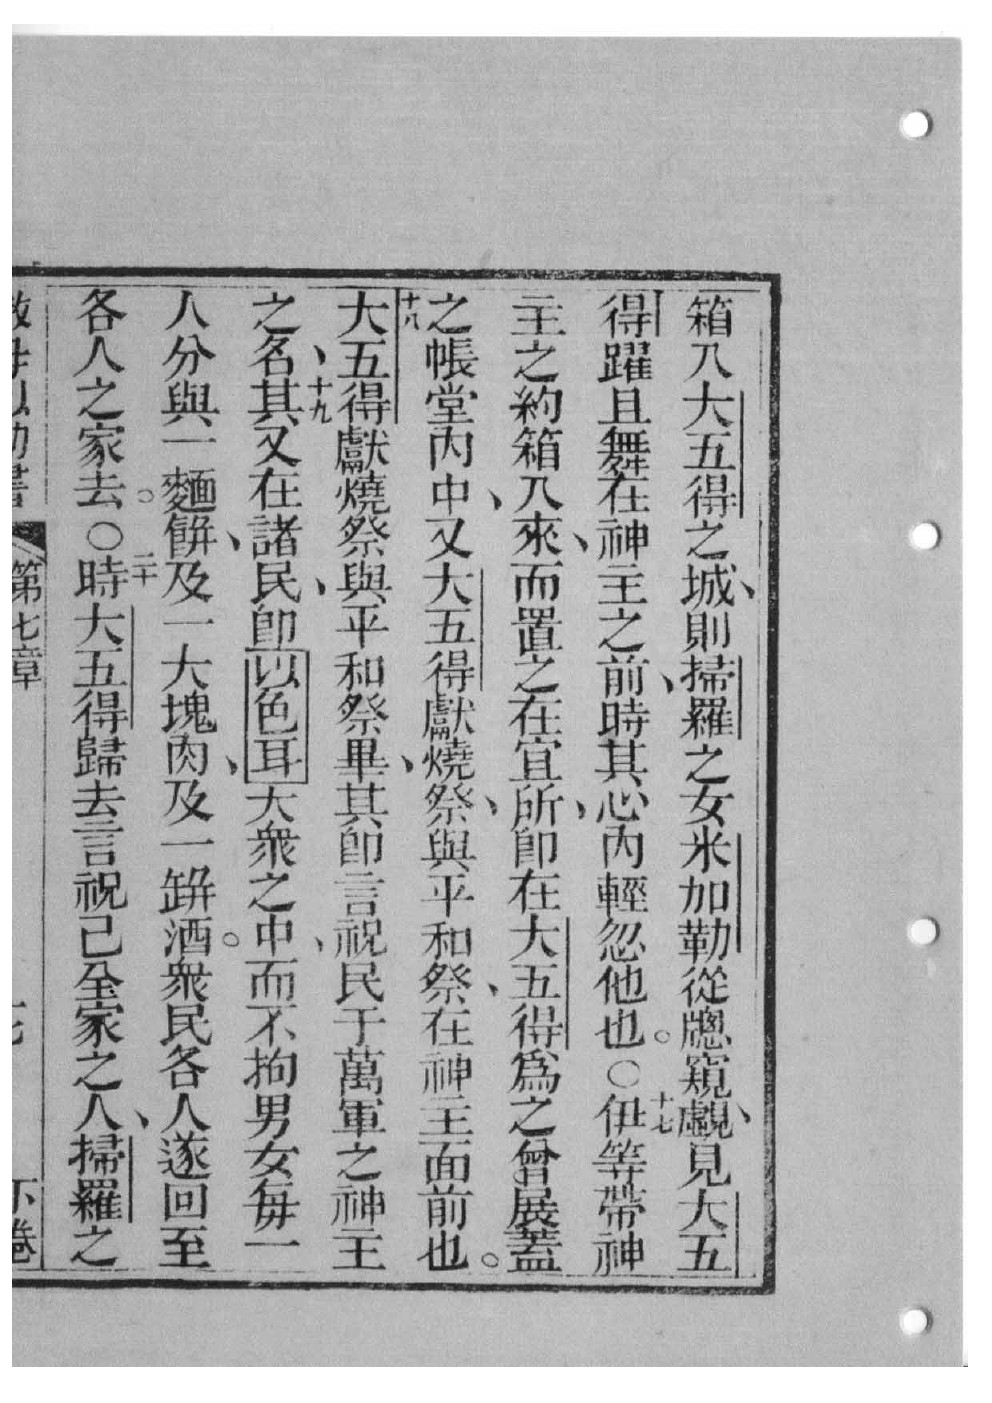 箱入大五得之城、則掃羅之女米加勒從牕窺覷、見大五
得躍且舞在神主之前、時其心內輕忽他也。○十七伊等帶神
主之約箱入來、而置之在宜所、卽在大五得爲之曾展蓋
之帳堂內中、又大五得獻燒祭、與平和祭、在神主面前也。
十八大五得獻燒祭與平和祭畢、其卽言祝民于萬軍之神主
之名、十九其又在諸民、卽以色耳大衆之中、而不拘男女每一
人分與一麵餅、及一大塊肉、及一缾酒。衆民各人遂回至
各人之家去。○二十時大五得歸去言祝己全家之人、掃羅之
第七章
下卷